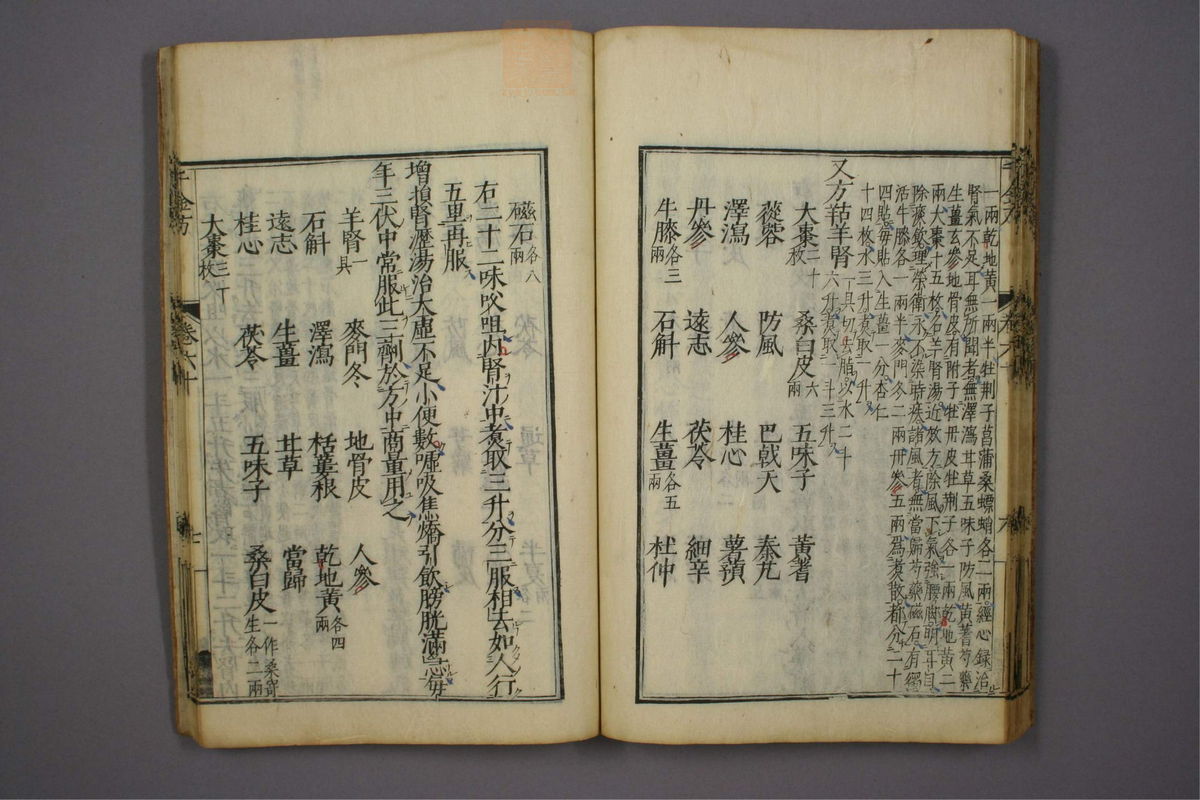 一兩乾地黃一兩半牡荆子菖蒲桑螵蛸各二兩經心録治
腎氣不足耳無所聞者無澤瀉甘草五味子防風黃蓍芍藥
生薑玄參地骨皮有附子牡丹皮牡荆子各一兩乾地黃二
兩大棗十五枚名羊腎湯近效方除風下氣強腰脚明耳目
除痰飲理榮衛永不染時疾諸風者無當歸芍藥磁石有獨
活牛膝各一兩半麥門冬二兩丹參五兩爲煮散都分二十
四貼毎貼入生薑一分杏仁
十四枚水三升煮取一升
又方羖羊腎一具切去脂以水二斗
六升煮取一斗三升
大棗二十枚 桑白皮六兩 五味子 黃蓍
蓯蓉 防風 巴戟天 秦艽
澤瀉 人參 桂心 薯蕷
丹參 遠志 茯苓 細辛
牛膝各三兩 石斛 生薑各五兩 杜仲
磁石各八兩
右二十二味㕮咀内腎汁中煮取三升分三服相去如人行
五里再服
增損腎瀝湯治大虚不足小便數嘘吸焦㷌引飲膀胱滿急毎
年三伏中常服此三劑於方中商量用之
羊腎一具 麥門冬 地骨皮 人參
石斛 澤瀉 栝蔞根 乾地黃各四兩
遠志 生薑 甘草 當歸
桂心 茯苓 五味子 桑白皮一作桑寄生各二兩
大棗三十枚
千金方
卷六十
七